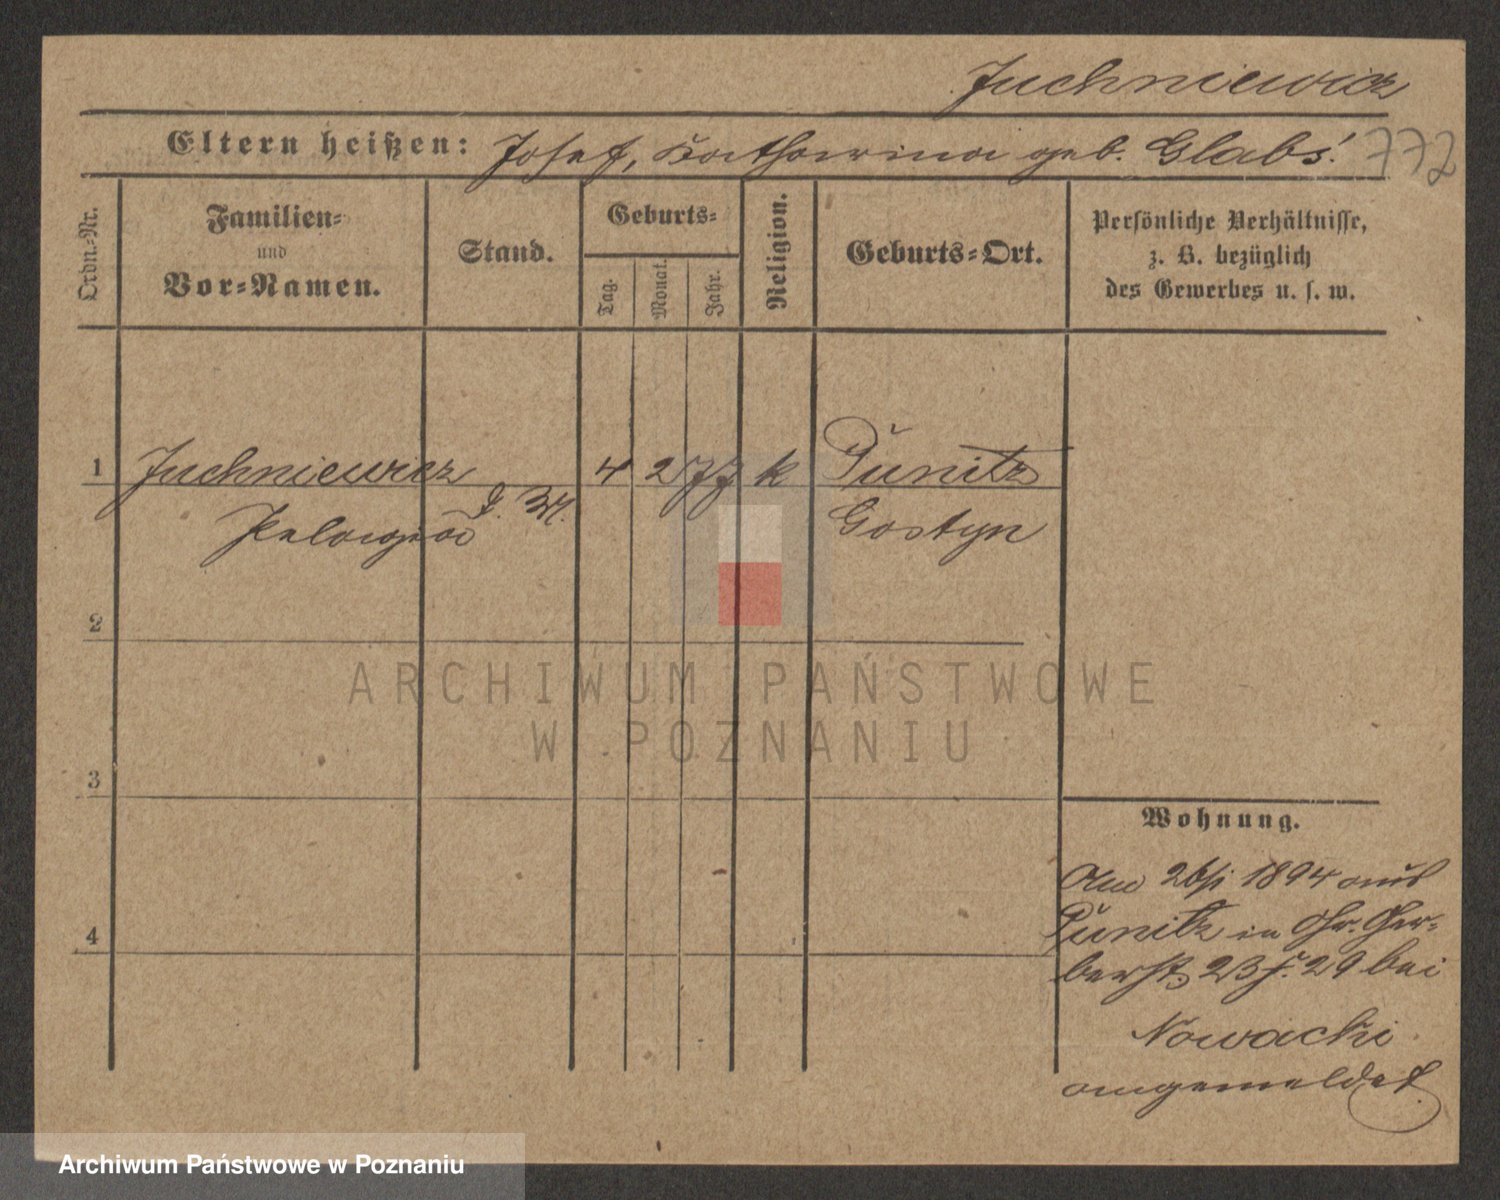 Juchniewicz
Eltern heißen: Josef, Katharina geb. Glabs. 772
Ordn.-Nr.
Familien-
und
Vor-Namen.
Stand.
Geburts-
Tag.
Monat.
Jahr.
Religion.
Geburts-Ort.
Persönliche Verhältnisse,
z. B. bezüglich
des Gewerbes u. s. w.
1 Juchniewicz 4 2 77 k Punitz
Pelagia d. M. Gostyn
2
3
4
Wohnung.
Am 26/1 1894 aus
Punitz in Gr. Ger-
berst. 23 29 bei
Nowacki
angemeldet.
ARCHIWUM PAŃSTWOWE
W POZNANIU
Archiwum Państwowe w Poznaniu